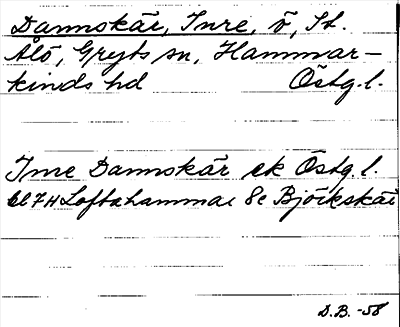 Dannskär, Inre, ö, St.
Ålö, Gryts sn, Hammar-
kinds hd Östg.l.
Inre Dannskär ek Östg. l.
bl 7H Loftahammar 8e Björkskär
D.B. -58